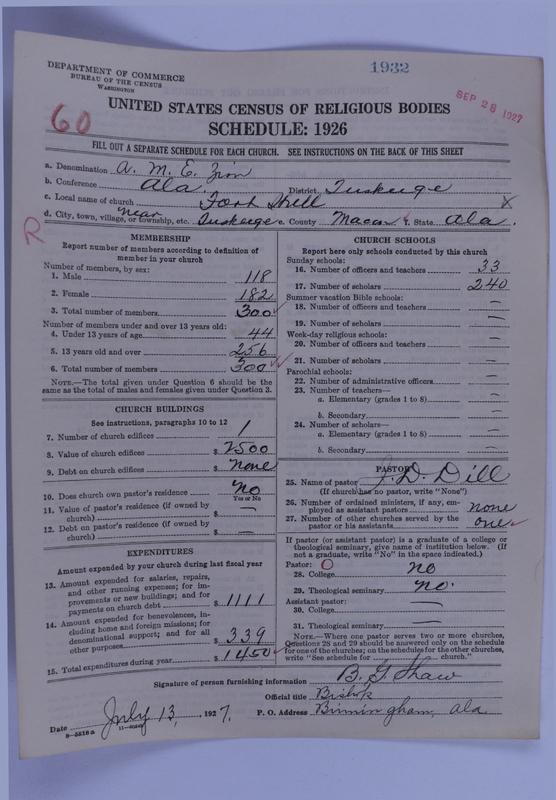 1932
DEPARTMENT OF COMMERCE
BUREAU OF THE CENSUS
WASHINGTON
SEP 28 1927
UNITED STATES CENSUS OF RELIGIOUS BODIES
60
SCHEDULE: 1926
FILL OUT A SEPARATE SCHEDULE FOR EACH CHURCH. SEE INSTRUCTIONS ON THE BACK OF THIS SHEET
a. Denomination A. M. E. Zion
b. Conference Ala. District Tuskegee
c. Local name of church X
d. City, town, village, or township, etc. near Tuskegee e. County Macon f. State Ala.
R
MEMBERSHIP
Report number of members according to definition of
member in your church
Number of members, by sex:
1. Male 118
2. Female 182
3. Total number of members 300
Number of members under and over 13 years old:
4. Under 13 years of age 44
5. 13 years old and over 256
6. Total number of members 300
NOTE.—The total given under Question 6 should be
same as the total of males and females given under Question 3.
CHURCH BUILDINGS
See instructions, paragraphs 10 to 12
7. Number of church edifices 1
8. Value of church edifices $ 2500
9. Debt on church edifices $ none
10. Does church own pastor's residence No
Yes or No
11. Value of pastor's residence (if owned by
church) $ —
12. Debt on pastor's residence (if owned by
church) $ —
EXPENDITURES
Amount expended by your church during last fiscal year
13. Amount expended for salaries, repairs,
and other running expenses; for im-
provements or new buildings; and for
payments on church debt $ 1111
14. Amount expended for benevolences, in-
cluding home and foreign missions; for
denominational support; and for all
other purposes $ 339
15. Total expenditures during year $ 1450
CHURCH SCHOOLS
Report here only schools conducted by this church
Sunday schools:
16. Number of officers and teachers 33
17. Number of scholars 240
Summer vacation Bible schools:
18. Number of officers and teachers —
19. Number of scholars —
Week-day religious schools:
20. Number of officers and teachers —
21. Number of scholars —
Parochial schools:
22. Number of administrative officers —
23. Number of teachers—
a. Elementary (grades 1 to 8) —
b. Secondary —
24. Number of scholars—
a. Elementary (grades 1 to 8) —
b. Secondary —
PASTOR
25. Name of pastor J. D. Dill
(If church has no pastor, write "None")
26. Number of ordained ministers, if any, em-
ployed as assistant pastors none
27. Number of other churches served by the
pastor or his assistants one
If pastor (or assistant pastor) is a graduate of a college or
theological seminary, give name of institution below. (If
not a graduate, write "No" in the space indicated.)
Pastor: O
28. College no
29. Theological seminary no.
Assistant pastor: —
30. College —
31. Theological seminary —
NOTE.—Where one pastor serves two or more churches,
Questions 28 and 29 should be answered only on the schedule
for one of the churches; on the schedules for the other churches,
write "See schedule for church."
Signature of person furnishing information B. G. Shaw
Official title Bishop
Date July 13, 1927. P. O. Address Birmingham, Ala